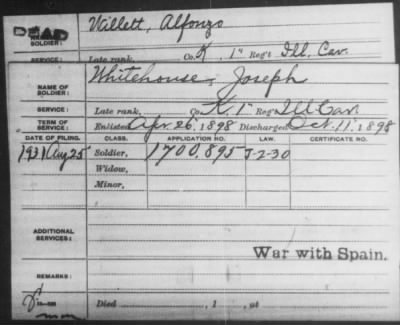 DEAD
SOLDIER: Willett, Alfonzo
SERVICE: Late rank, Co. K, 1" Reg't Ill. Cav.
NAME OF SOLDIER: Whitehouse, Joseph
SERVICE: Late rank, Co. K, 1" Reg't Ill Cav.
TERM OF SERVICE: Enlisted Apr. 26, 1898 Discharged Oct. 11, 1898
DATE OF FILING. CLASS. APPLICATION NO. LAW. CERTIFICATE NO.
1931 Aug 25 Soldier, 1700,895 J-2-30
Widow,
Minor,
ADDITIONAL SERVICES:
War with Spain.
REMARKS:
Died , 1 , at